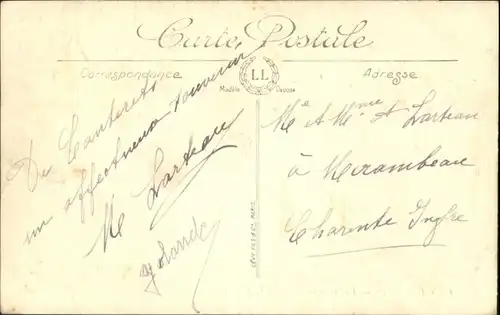 Carte Postale
Correspondance
LL
Adresse
Modèle Déposé
De Cauterets
un affectueux souvenir
M Larteau
Yolande
Mr & Mme A Larteau
à Mirambeau
Charente Infre